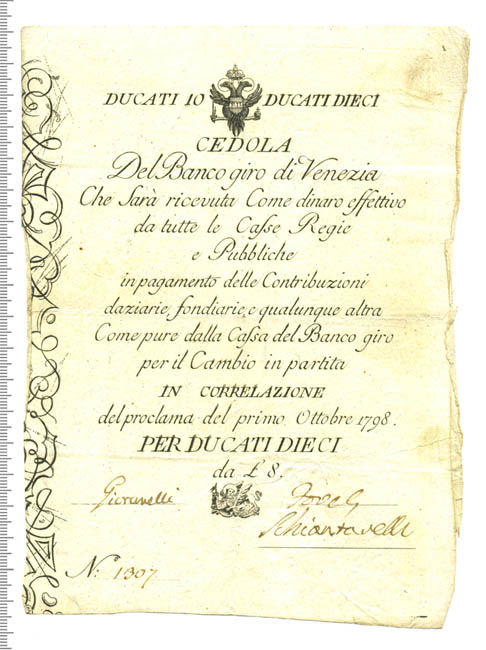 DUCATI 10 DUCATI DIECI
CEDOLA
Del Banco giro di Venezia
Che Sarà ricevuta Come dinaro effettivo
da tutte le Casse Regie
e Pubbliche
in pagamento delle Contribuzioni
daziarie, fondiarie, e qualunque altra
Come pure dalla Cassa del Banco giro
per il Cambio in partita
IN CORRELAZIONE
del proclama del primo Ottobre 1798.
PER DUCATI DIECI
da £ 8.
N: 1307